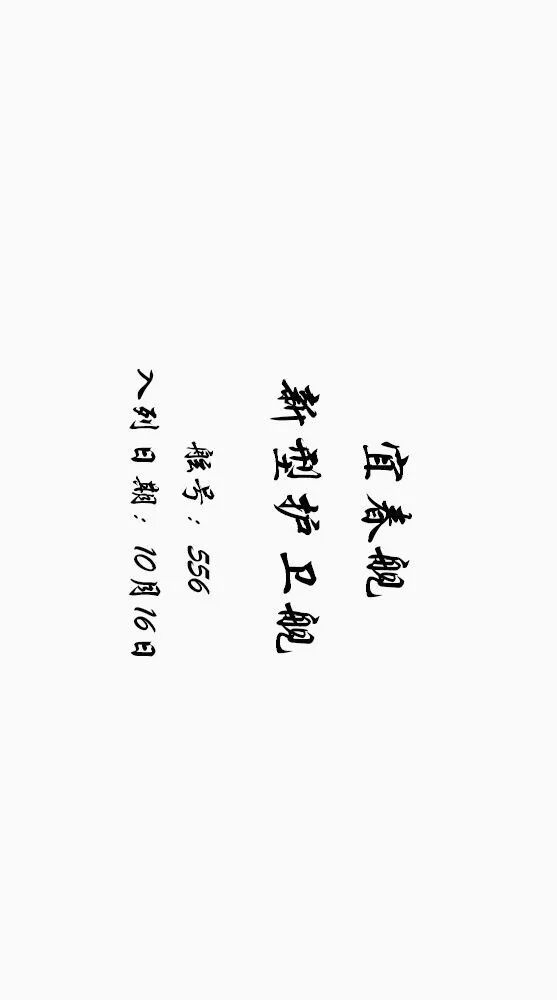 宜春舰
新型护卫舰
舷号：556
入列日期：10月16日